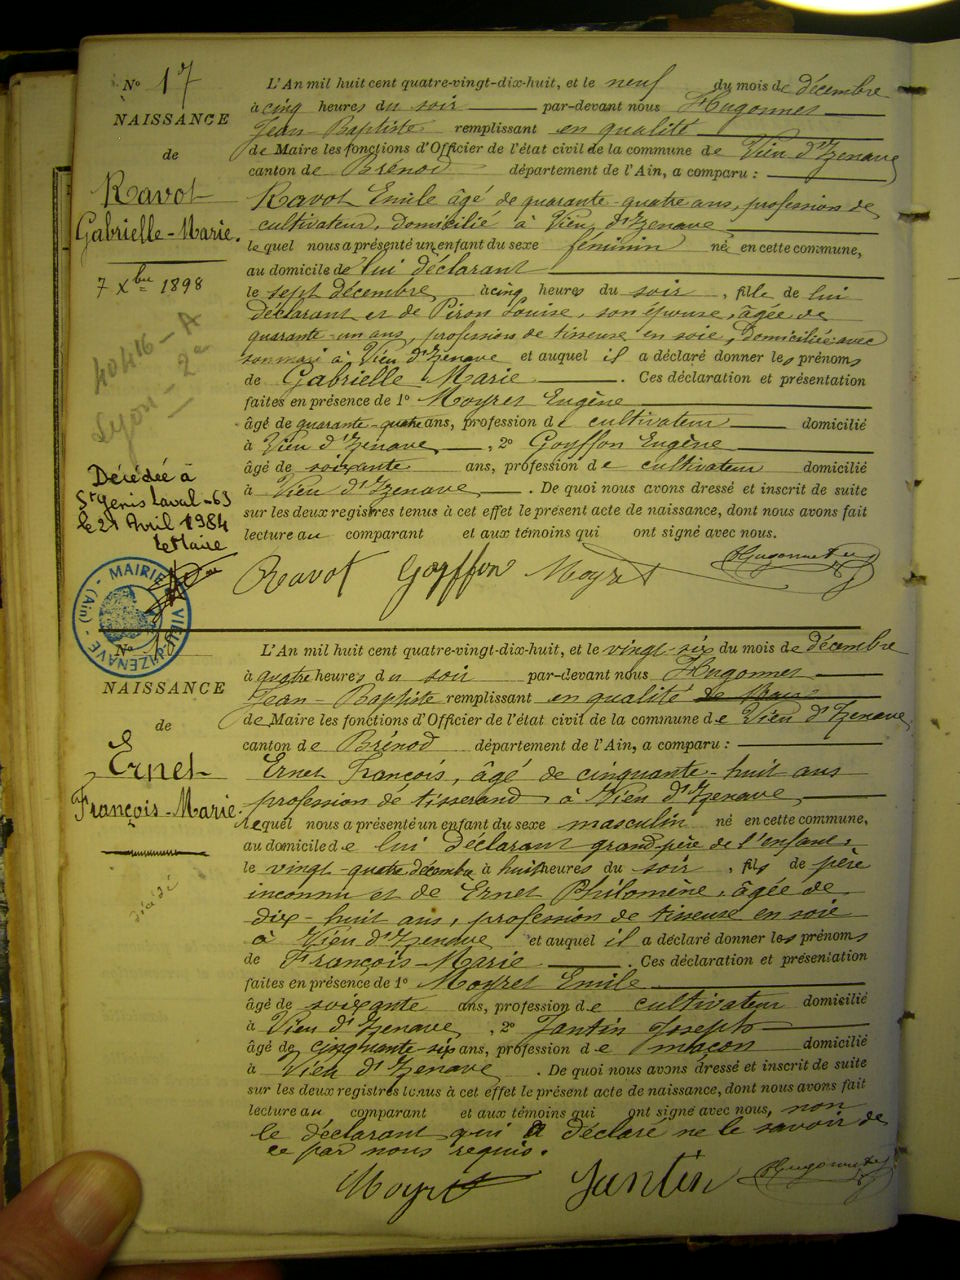 N° 17
NAISSANCE
de
Ravot
Gabrielle-Marie.
7 Xbre 1898
40416-A
Lyon - 2e
Décédée à
St Genis Laval-69
le 21 Avril 1984
Le Maire
MAIRIE VIEU-D'IZENAVE (Ain)
L'An mil huit cent quatre-vingt-dix-huit, et le neuf du mois de décembre
à cinq heures du soir par-devant nous Hugonnet
Jean-Baptiste remplissant en qualité
de Maire les fonctions d'Officier de l'état civil de la commune de Vieu d'Izenave
canton de Brénod département de l'Ain, a comparu :
Ravot Emile âgé de quarante-quatre ans, profession de
cultivateur, domicilié à Vieu d'Izenave
lequel nous a présenté un enfant du sexe féminin né en cette commune,
au domicile de lui déclarant
le sept décembre à cinq heures du soir, fille de lui
déclarant et de Piron Louise, son épouse, âgée de
quarante-un ans, profession de tisseuse en soie, domiciliée avec
son mari à Vieu d'Izenave et auquel il a déclaré donner les prénoms
de Gabrielle Marie. Ces déclaration et présentation
faites en présence de 1° Moyret Eugène
âgé de quarante-quatre ans, profession de cultivateur domicilié
à Vieu d'Izenave, 2° Goyffon Eugène
âgé de soixante ans, profession de cultivateur domicilié
à Vieu d'Izenave. De quoi nous avons dressé et inscrit de suite
sur les deux registres tenus à cet effet le présent acte de naissance, dont nous avons fait
lecture au comparant et aux témoins qui ont signé avec nous.
Ravot Goyffon Moyret Hugonnet
N° 18
NAISSANCE
de
Ernet
François-Marie.
décédé
L'An mil huit cent quatre-vingt-dix-huit, et le vingt-six du mois de décembre
à quatre heures du soir par-devant nous Hugonnet
Jean-Baptiste remplissant en qualité de Maire
de Maire les fonctions d'Officier de l'état civil de la commune de Vieu d'Izenave
canton de Brénod département de l'Ain, a comparu :
Ernet François, âgé de cinquante-huit ans
profession de tisserand à Vieu d'Izenave
lequel nous a présenté un enfant du sexe masculin né en cette commune,
au domicile de lui déclarant grand-père de l'enfant,
le vingt-quatre décembre à huit heures du soir, fils de père
inconnu et de Ernet Philomène, âgée de
dix-huit ans, profession de tisseuse en soie
à Vieu d'Izenave et auquel il a déclaré donner les prénoms
de François-Marie. Ces déclaration et présentation
faites en présence de 1° Moyret Emile
âgé de soixante ans, profession de cultivateur domicilié
à Vieu d'Izenave, 2° Jantin Joseph
âgé de cinquante-six ans, profession de maçon domicilié
à Vieu d'Izenave. De quoi nous avons dressé et inscrit de suite
sur les deux registres tenus à cet effet le présent acte de naissance, dont nous avons fait
lecture au comparant et aux témoins qui ont signé avec nous, non
le déclarant qui a déclaré ne le savoir de
ce par nous requis.
Moyret Jantin Hugonnet